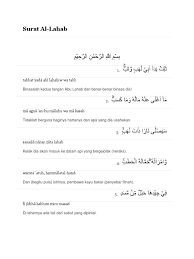 Surat Al-Lahab
بِسْمِ اللَّهِ الرَّحْمَنِ الرَّحِيْمِ
تَبَّتْ يَدَا أَبِي لَهَبٍ وَتَبَّ
tabbat yadā abī lahabiw wa tabb
Binasalah kedua tangan Abu Lahab dan benar-benar binasa dia!
مَا أَغْنَى عَنْهُ مَالُهُ وَمَا كَسَبَ
mā agnā 'an-hu māluhụ wa mā kasab
Tidaklah berguna baginya hartanya dan apa yang dia usahakan.
سَيَصْلَى نَارًا ذَاتَ لَهَبٍ
sayaṣlā nāran żāta lahab
Kelak dia akan masuk ke dalam api yang bergejolak (neraka).
وَامْرَأَتُهُ حَمَّالَةَ الْحَطَبِ
wamra`atuh, ḥammālatal-ḥaṭab
Dan (begitu pula) istrinya, pembawa kayu bakar (penyebar fitnah).
فِي جِيدِهَا حَبْلٌ مِنْ مَسَدٍ
fī jīdihā ḥablum mim masad
Di lehernya ada tali dari sabut yang dipintal.